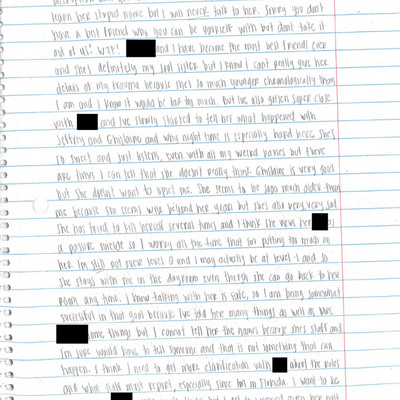 learn her stupid name but I will never talk to her. Sorry you don't
have a best friend who you can be yourself with but don't take it
out of us! WTF! and I have become the most best friends ever
and she's definitely my soul sister but I know I can't really give her
details of my trauma because she's so much younger chronologically than
I am and I know it would be far too much. But I've also gotten super close
with and I've slowly started to tell her what happened with
Jeffrey and Ghislaine and why night time is especially hard here. She's
so sweet and just listens, even with all my weird pauses but there
are times I can tell that she doesn't really think Ghislaine is very good
but she doesn't want to upset me. She seems to be much older than
me because she seems wise beyond her years but she's also very very sad
She has tried to kill herself several times and I think she views her
a passive suicide so I worry all the time that I'm putting too much on
her. I'm still not near level 0 and I may actually be at level 1 and so
she stays with me in the dayroom even though she can go back to her
room any time. I know talking with her is safe, so I am being somewhat
successful in that goal because I've told her many things as well as
some things but I cannot tell her the names because she's staff and
I'm sure would have to tell someone and that is not something that can
happen. I think I need to get more clarification with about the rules
and what must report, especially since I'm in Florida. I want to be